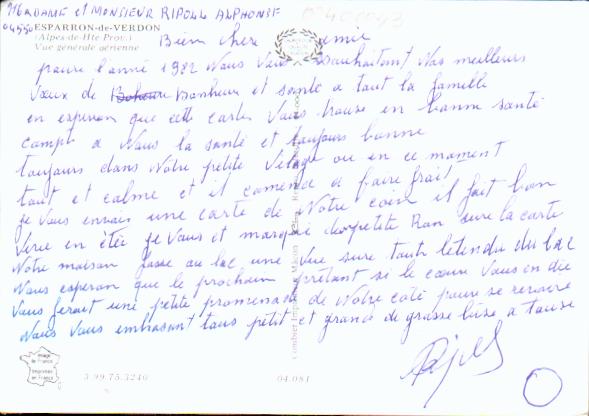 MADAME et MONSIEUR RIPOLL ALPHONSE
04550 ESPARRON-de-VERDON
(Alpes-de-Hte Prov.)
Vue générale aérienne
Bien chere amie
paure l'anné 1982 Nous Vous Souhaitont Nos meilleurs
Vœux de Bonheur et santé a tout la famille
en esperon que cette carte Vous trouse en bonn santé
campt a Nous la santé et toujours bonne
toujours dans Notre petite Vilage ou en ce moment
tout et calme et il comence a faire frait
je Vous envais une carte de Notre coin il fait bon
Vivre en étée je Vous et marqué petite Ron sure la carte
Notre maison fasse au lac une Vue sure tout létendu du lac
Nous esperon que le prochain prétant si le cœur Vous en die
Vous feront une petite promenade de Notre coté paure se revoire
Nous Vous embrasant tous petit et grand de grosse bise a tause
Ripoll
Image de France
Imprimé en France
3.99.75.3240
04.081
Combier Imprimeur Mâcon